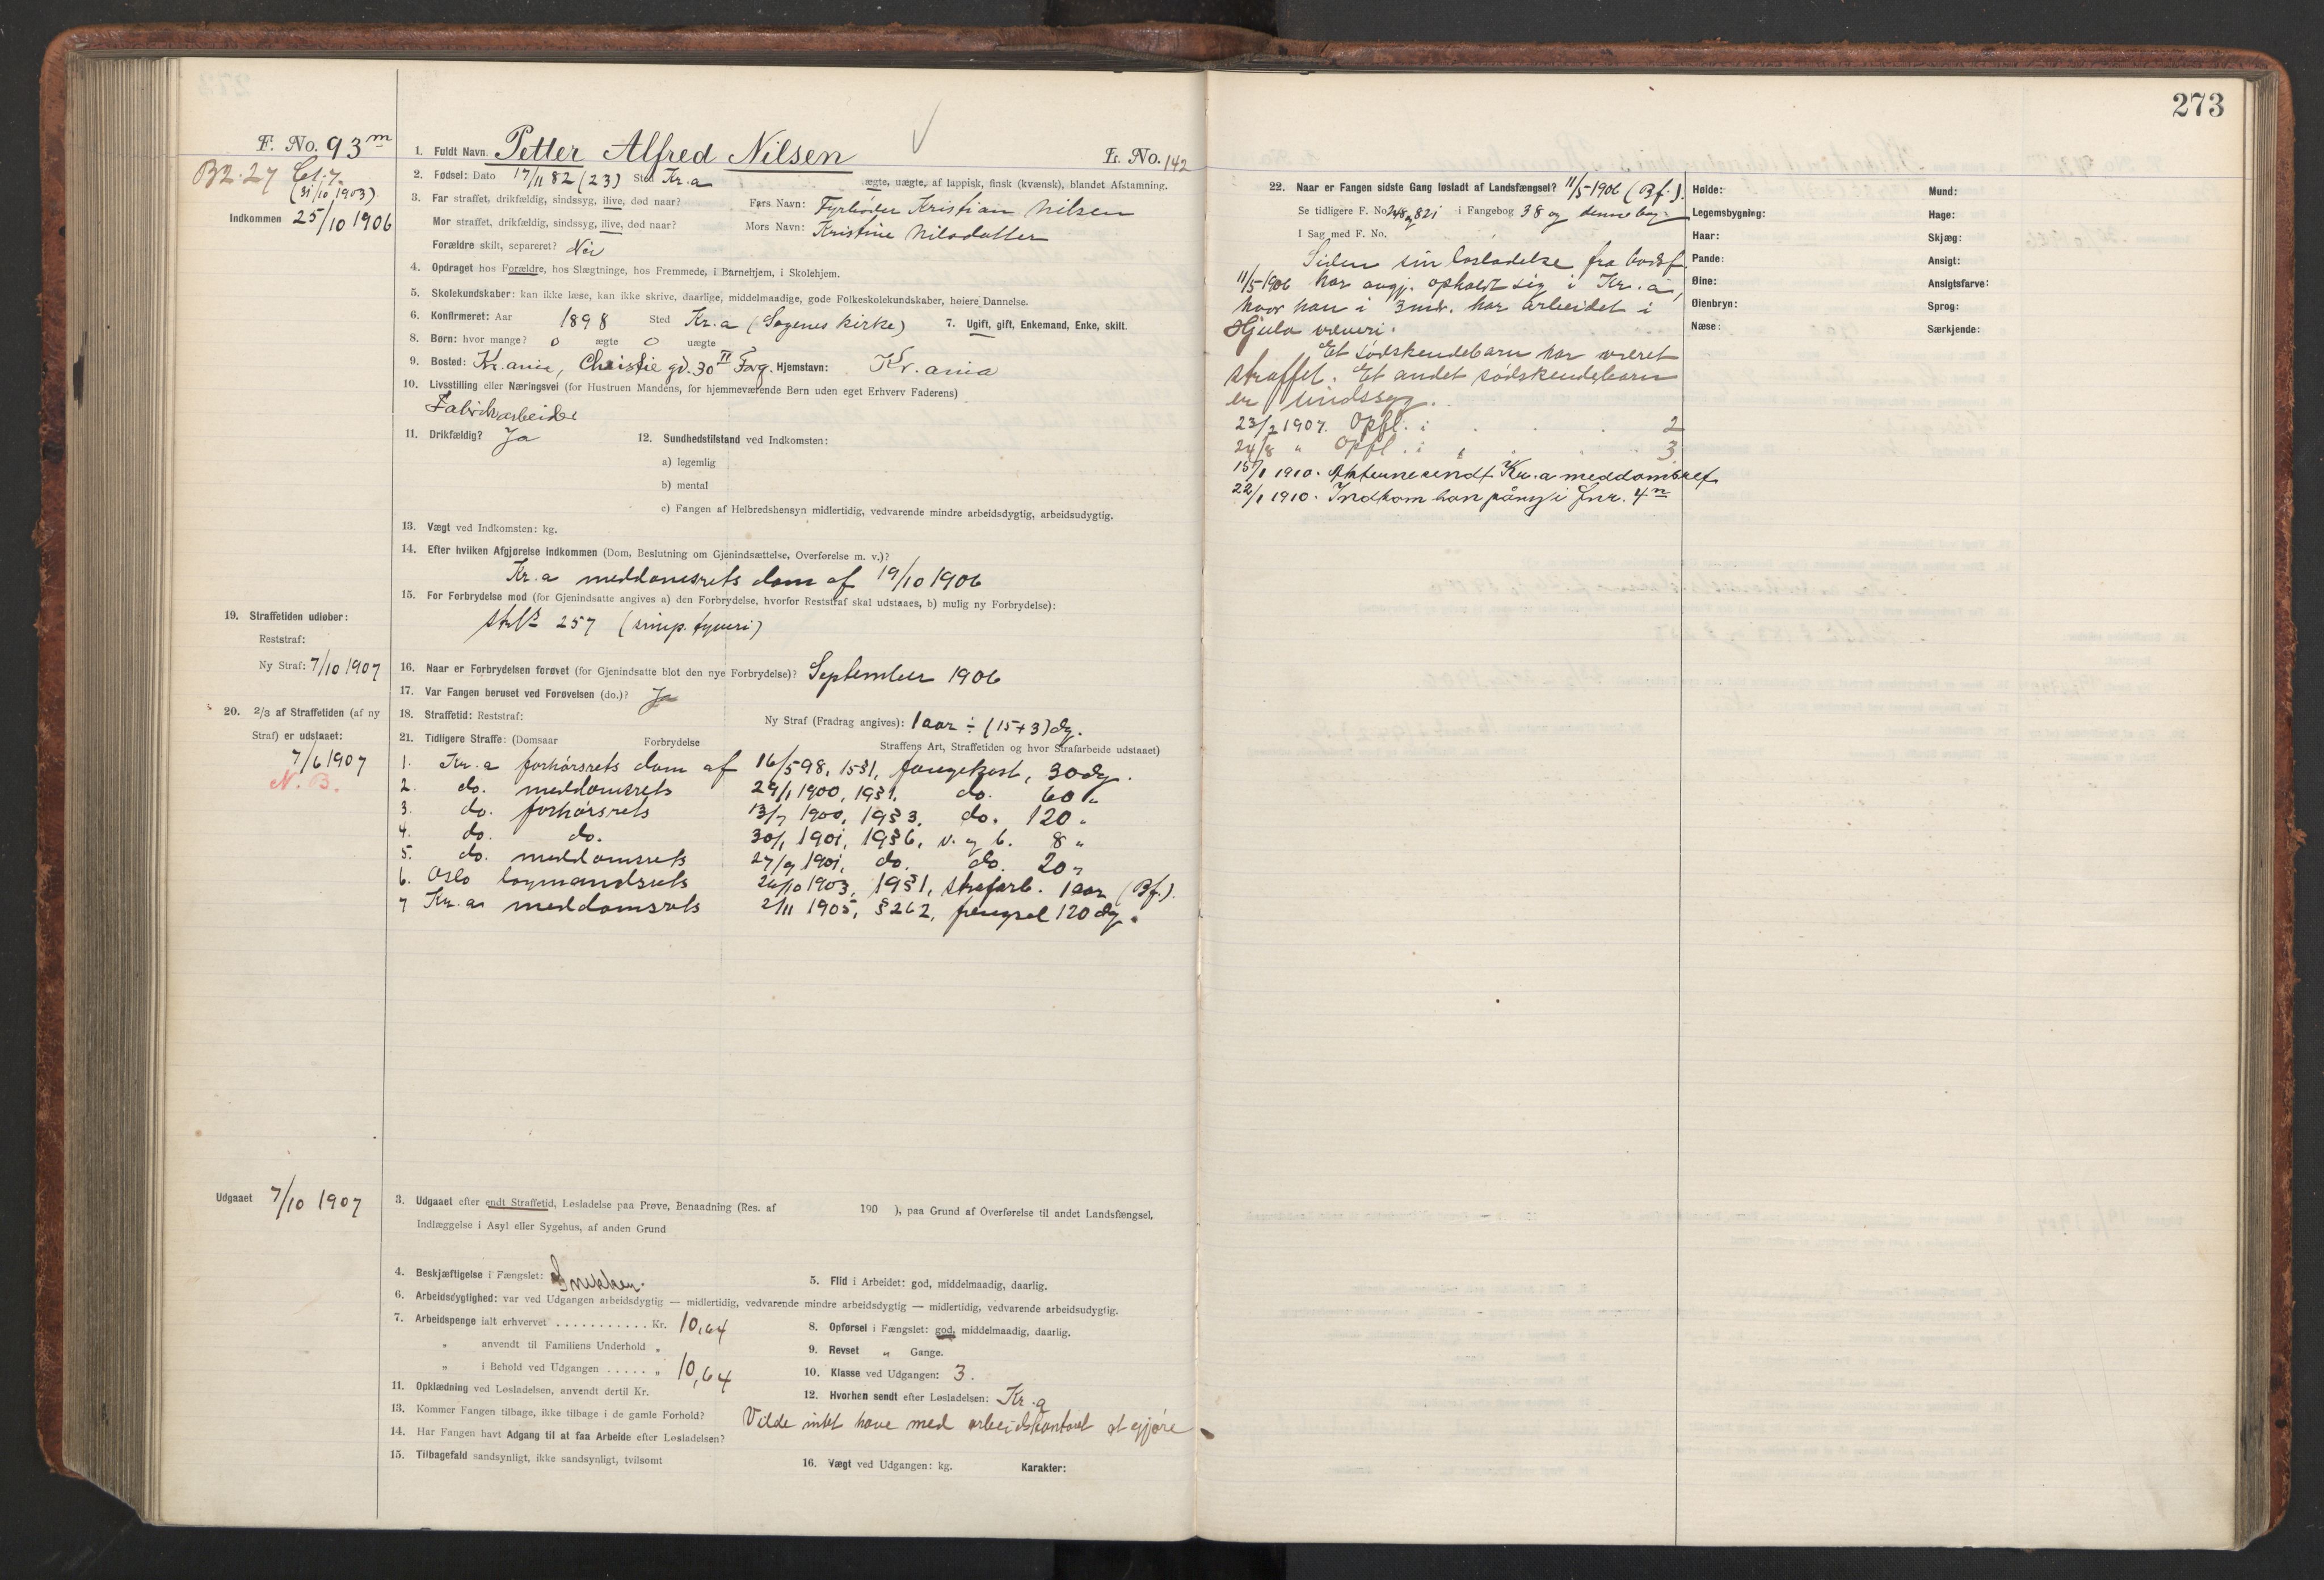 273
F. No. 93 m
B2.27 Cl. 7.
(31/10 1903)
Indkommen 25/10 1906
1. Fuldt Navn. Petter Alfred Nilsen Fr. No. 142
2. Fødsel: Dato 17/11 82 (23) Sted Kr.a ægte, uægte, af lappisk, finsk (kvænsk), blandet Afstamning.
3. Far straffet, drikfældig, sindssyg, ilive, død naar? Fars Navn: Fyrbøder Kristian Nilsen
Mor straffet, drikfældig, sindssyg, ilive, død naar? Mors Navn: Kristine Nilsdatter
Forældre skilt, separeret? Nei
4. Opdraget hos Forældre, hos Slægtninge, hos Fremmede, i Barnehjem, i Skolehjem.
5. Skolekundskaber: kan ikke læse, kan ikke skrive, daarlige, middelmaadige, gode Folkeskolekundskaber, høiere Dannelse.
6. Konfirmeret: Aar 1898 Sted Kr.a (Sagenes kirke) 7. Ugift, gift, Enkemand, Enke, skilt.
8. Børn: hvor mange? 0 ægte 0 uægte
9. Bosted: Kr.ania, Christie gd. 30 II Forg. Hjemstavn: Kr.ania
10. Livsstilling eller Næringsvei (for Hustruen Mandens, for hjemmeværende Børn uden eget Erhverv Faderens)
Fabrikarbeider
11. Drikfældig? Ja 12. Sundhedstilstand ved Indkomsten:
a) legemlig
b) mental
c) Fangen af Helbredshensyn midlertidig, vedvarende mindre arbeidsdygtig, arbeidsudygtig.
13. Vægt ved Indkomsten: kg.
14. Efter hvilken Afgjørelse indkommen (Dom, Beslutning om Gjenindsættelse, Overførelse m. v.)?
Kr.a meddomsrets dom af 19/10 1906
15. For Forbrydelse mod (for Gjenindsatte angives a) den Forbrydelse, hvorfor Reststraf skal udstaaes, b) mulig ny Forbrydelse):
257 (simp. tyveri)
19. Straffetiden udløber:
Reststraf:
Ny Straf: 7/10 1907
16. Naar er Forbrydelsen forøvet (for Gjenindsatte blot den nye Forbrydelse)? September 1906
17. Var Fangen beruset ved Forøvelsen (do.)? Ja
18. Straffetid: Reststraf: Ny Straf (Fradrag angives): 1 aar ÷ (15+3) dg.
20. 2/3 af Straffetiden (af ny
Straf) er udstaaet:
7/6 1907
N. B.
21. Tidligere Straffe: (Domsaar Forbrydelse Straffens Art, Straffetiden og hvor Strafarbeide udstaaet)
1. Kr.a forhørsrets dom af 16/5 98, 15§1, fangekost, 30 dg.
2. do. meddomsrets 29/1 1900, 19§1, do. 60 "
3. do. forhørsrets 13/7 1900, 19§3, do. 120 "
4. do. do. 30/1 1901, 19§6, v. og b. 8 "
5. do. meddomsrets 27/9 1901, do. do. 20 "
6. Oslo lagmandsrets 26/10 1903, 19§1, strafarb. 1 aar (Bf.)
7 Kr.a meddomsrets 2/11 1905, §262, fængsel 120 dg.
Udgaaet 7/10 1907
3. Udgaaet efter endt Straffetid, Løsladelse paa Prøve, Benaadning (Res. af 190 ), paa Grund af Overførelse til andet Landsfængsel,
Indlæggelse i Asyl eller Sygehus, af anden Grund
4. Beskjæftigelse i Fængslet: Snekker. 5. Flid i Arbeidet: god, middelmaadig, daarlig.
6. Arbeidsdygtighed: var ved Udgangen arbeidsdygtig — midlertidig, vedvarende mindre arbeidsdygtig — midlertidig, vedvarende arbeidsudygtig.
7. Arbeidspenge ialt erhvervet . . . . . . . . . . . Kr. 10,64 8. Opførsel i Fængslet: god, middelmaadig, daarlig.
„ anvendt til Familiens Underhold „ 9. Revset „ Gange.
„ i Behold ved Udgangen . . . . . „ 10,64 10. Klasse ved Udgangen: 3.
11. Opklædning ved Løsladelsen, anvendt dertil Kr. 12. Hvorhen sendt efter Løsladelsen: Kr.a
13. Kommer Fangen tilbage, ikke tilbage i de gamle Forhold? Vilde intet have med arbeidskontoret at gjøre
14. Har Fangen havt Adgang til at faa Arbeide efter Løsladelsen?
15. Tilbagefald sandsynligt, ikke sandsynligt, tvilsomt 16. Vægt ved Udgangen: kg. Karakter:
22. Naar er Fangen sidste Gang løsladt af Landsfængsel? 11/5-1906 (Bf.)
Se tidligere F. No. 248 og 821 i Fangebog 38 og denne bog
I Sag med F. No.
Siden sin løsladelse fra bodsf.
11/5-1906 har angj. opholdt sig i Kr.a,
hvor han i 3 mdr. har arbeidet i
Hjula væveri.
Et sødskendebarn har været
straffet. Et andet sødskendebarn
er sindssyg.
23/2 1907. Opfl. i . . . 2
24/8 " Opfl. i . . . 3
15/1 1910. Akterne sendt Kr.a meddomsret
22/1 1910. Indkom han påny i Fnr. 4 n
Høide: Mund:
Legemsbygning: Hage:
Haar: Skjæg:
Pande: Ansigt:
Øine: Ansigtsfarve:
Øienbryn: Sprog:
Næse: Særkjende: